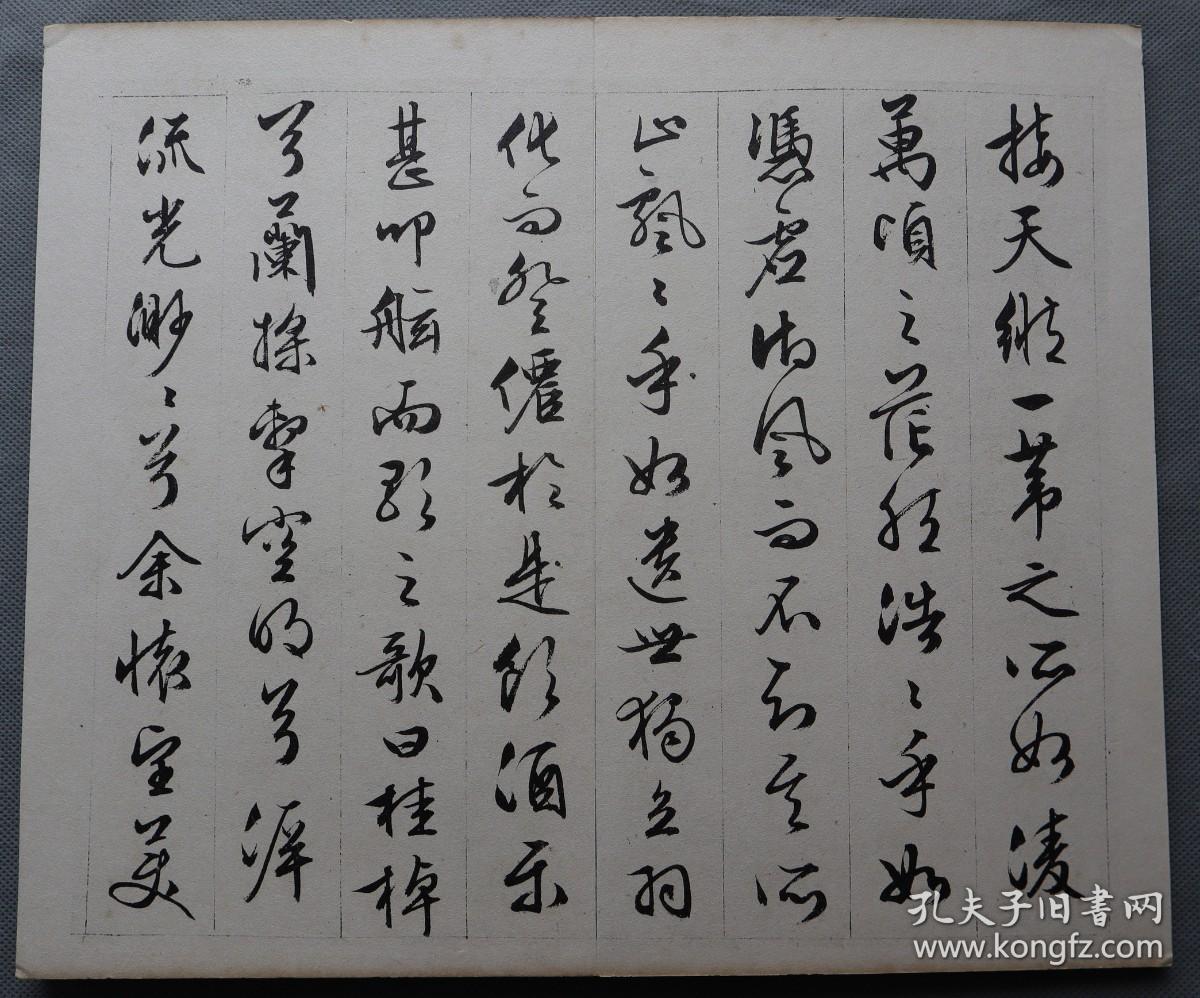 接天縱一葦之所如凌
萬頃之茫然浩〻乎如
馮虛御風而不知其所
止飄〻乎如遺世獨立羽
化而登僊於是飲酒樂
甚叩舷而歌之歌曰桂棹
兮蘭槳擊空明兮泝
流光渺〻兮余懷望美
孔夫子旧書网
www.kongfz.com